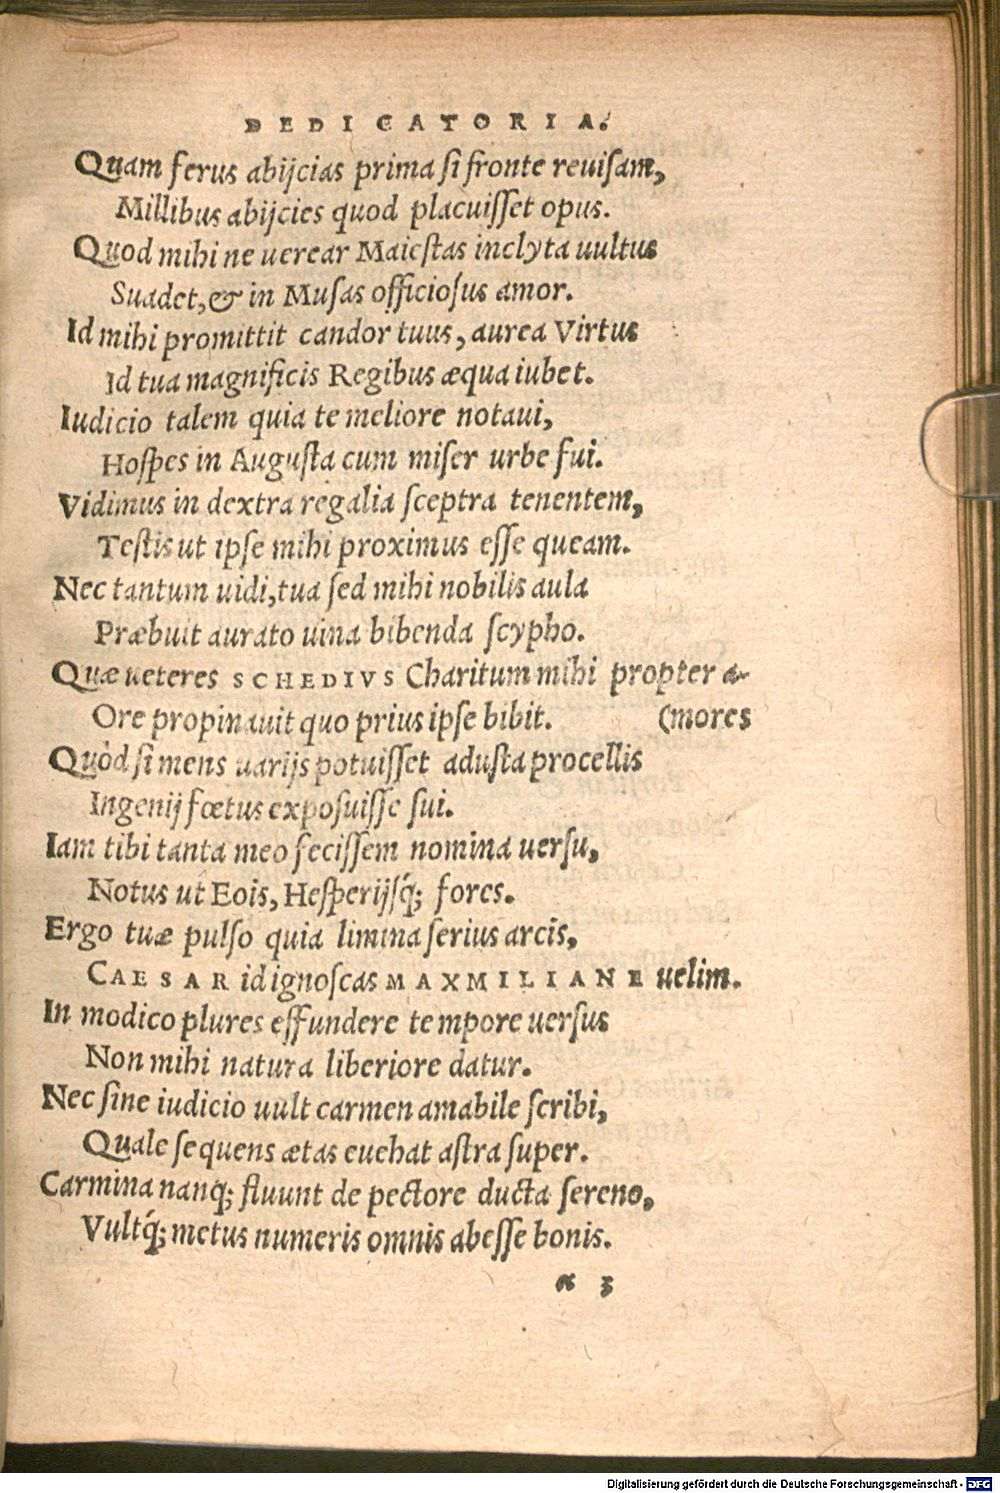 DEDICATORIA.
Quam ferus abijcias prima si fronte reuisam,
Millibus abijcies quod placuisset opus.
Quod mihi ne uerear Maiestas inclyta uultus
Suadet, & in Musas officiosus amor.
Id mihi promittit candor tuus, aurea Virtus
Id tua magnificis Regibus æqua iubet.
Iudicio talem quia te meliore notaui,
Hospes in Augusta cum miser urbe fui.
Vidimus in dextra regalia sceptra tenentem,
Testis ut ipse mihi proximus esse queam.
Nec tantum uidi, tua sed mihi nobilis aula
Præbuit aurato uina bibenda scypho.
Quæ ueteres SCHEDIVS Charitum mihi propter a-
Ore propinauit quo prius ipse bibit. (mores
Quòd si mens uarijs potuisset adusta procellis
Ingenij fœtus exposuisse sui.
Iam tibi tanta meo fecissem nomina uersu,
Notus ut Eois, Hesperijsq́; fores.
Ergo tuæ pulso quia limina serius arcis,
CAESAR id ignoscas MAXMILIANE uelim.
In modico plures effundere tempore uersus
Non mihi natura liberiore datur.
Nec sine iudicio uult carmen amabile scribi,
Quale sequens ætas euehat astra super.
Carmina nanq; fluunt de pectore ducta sereno,
Vultq́; metus numeris omnis abesse bonis.
3
Digitalisierung gefördert durch die Deutsche Forschungsgemeinschaft - DFG